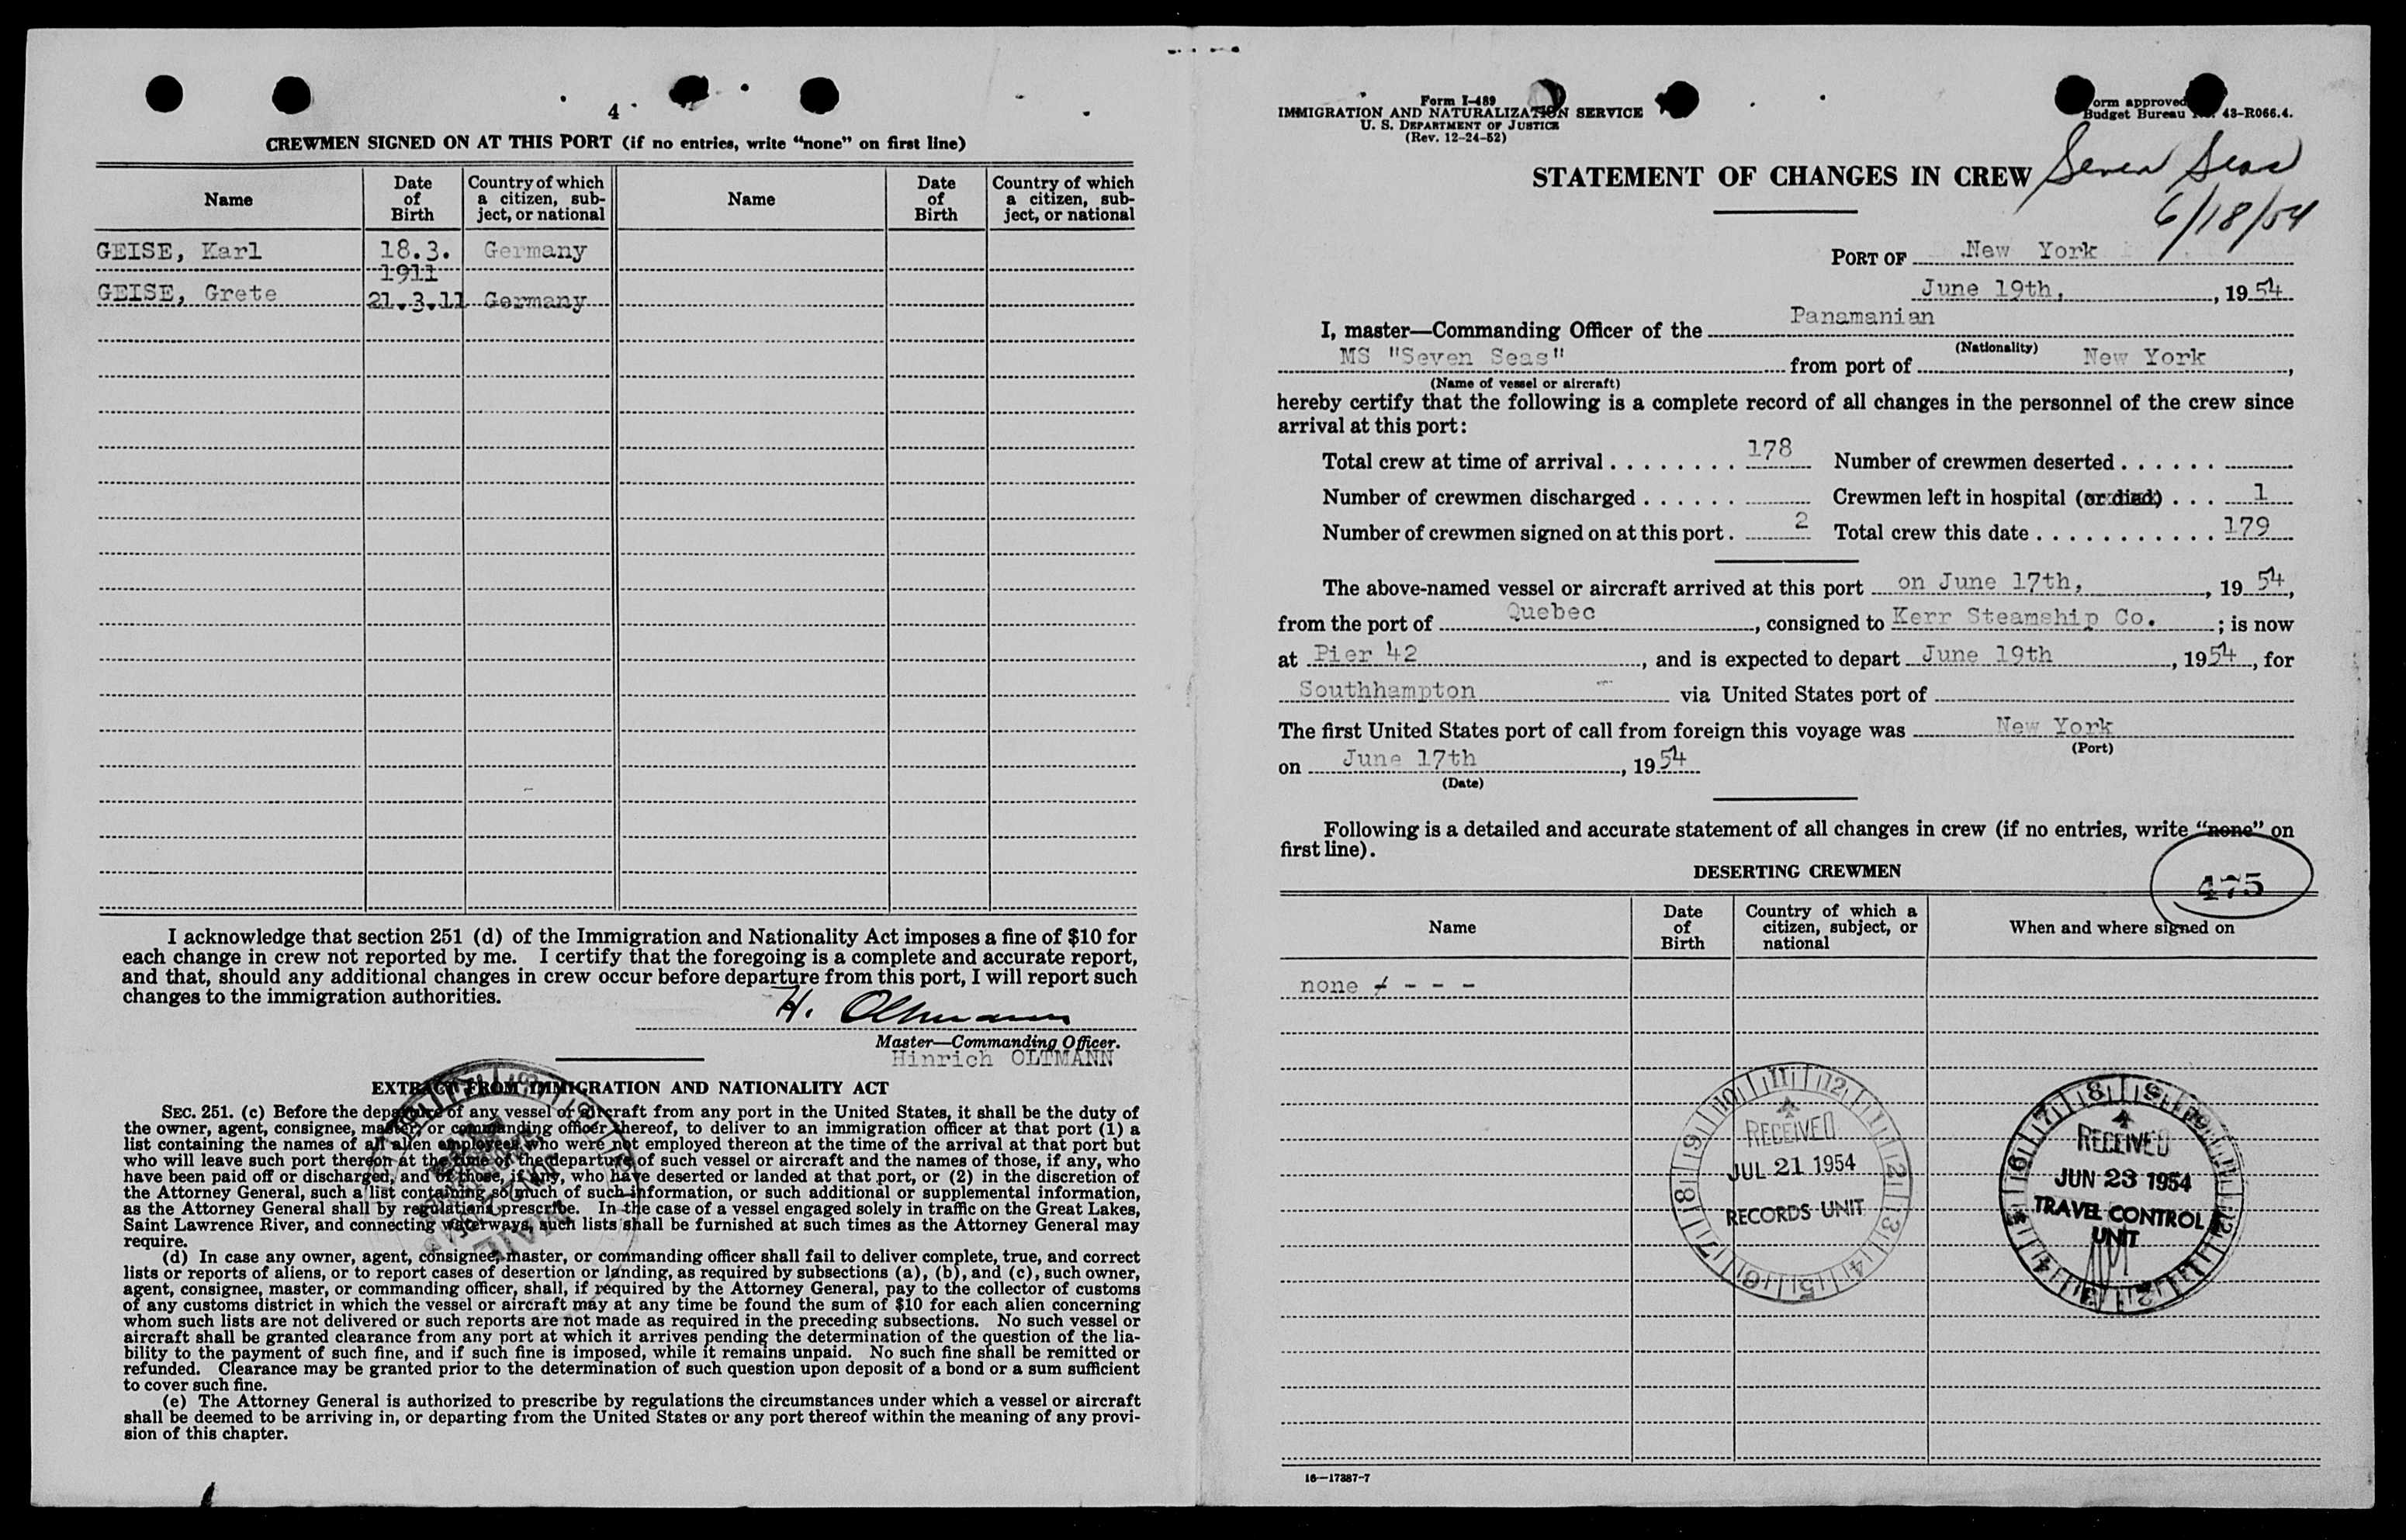 4
CREWMEN SIGNED ON AT THIS PORT (if no entries, write "none" on first line)
Name | Date of Birth | Country of which a citizen, subject, or national | Name | Date of Birth | Country of which a citizen, subject, or national
GEISE, Karl 18.3. Germany
1911
GEISE, Grete 21.3.11 Germany
I acknowledge that section 251 (d) of the Immigration and Nationality Act imposes a fine of $10 for
each change in crew not reported by me. I certify that the foregoing is a complete and accurate report,
and that, should any additional changes in crew occur before departure from this port, I will report such
changes to the immigration authorities.
H. Oltmann
Master—Commanding Officer.
Hinrich OLTMANN
EXTRACT FROM IMMIGRATION AND NATIONALITY ACT
SEC. 251. (c) Before the departure of any vessel or aircraft from any port in the United States, it shall be the duty of
the owner, agent, consignee, master, or commanding officer thereof, to deliver to an immigration officer at that port (1) a
list containing the names of all alien employees who were not employed thereon at the time of the arrival at that port but
who will leave such port thereon at the time of the departure of such vessel or aircraft and the names of those, if any, who
have been paid off or discharged, and of those, if any, who have deserted or landed at that port, or (2) in the discretion of
the Attorney General, such a list containing so much of such information, or such additional or supplemental information,
as the Attorney General shall by regulations prescribe. In the case of a vessel engaged solely in traffic on the Great Lakes,
Saint Lawrence River, and connecting waterways, such lists shall be furnished at such times as the Attorney General may
require.
(d) In case any owner, agent, consignee, master, or commanding officer shall fail to deliver complete, true, and correct
lists or reports of aliens, or to report cases of desertion or landing, as required by subsections (a), (b), and (c), such owner,
agent, consignee, master, or commanding officer, shall, if required by the Attorney General, pay to the collector of customs
of any customs district in which the vessel or aircraft may at any time be found the sum of $10 for each alien concerning
whom such lists are not delivered or such reports are not made as required in the preceding subsections. No such vessel or
aircraft shall be granted clearance from any port at which it arrives pending the determination of the question of the lia-
bility to the payment of such fine, and if such fine is imposed, while it remains unpaid. No such fine shall be remitted or
refunded. Clearance may be granted prior to the determination of such question upon deposit of a bond or a sum sufficient
to cover such fine.
(e) The Attorney General is authorized to prescribe by regulations the circumstances under which a vessel or aircraft
shall be deemed to be arriving in, or departing from the United States or any port thereof within the meaning of any provi-
sion of this chapter.
Form I-489
IMMIGRATION AND NATURALIZATION SERVICE
U. S. DEPARTMENT OF JUSTICE
(Rev. 12-24-52)
orm approved
Budget Bureau 43-R066.4.
STATEMENT OF CHANGES IN CREW
Seven Seas
6/18/54
PORT OF New York
June 19th, , 1954
I, master—Commanding Officer of the Panamanian
(Nationality)
MS "Seven Seas" from port of New York,
(Name of vessel or aircraft)
hereby certify that the following is a complete record of all changes in the personnel of the crew since
arrival at this port:
Total crew at time of arrival . . . . . . . . 178 Number of crewmen deserted . . . . . .
Number of crewmen discharged . . . . . . Crewmen left in hospital (or died) . . . 1
Number of crewmen signed on at this port . 2 Total crew this date . . . . . . . . . . . 179
The above-named vessel or aircraft arrived at this port on June 17th, , 19 54,
from the port of Quebec, consigned to Kerr Steamship Co. ; is now
at Pier 42, and is expected to depart June 19th, 1954, for
Southhampton via United States port of
The first United States port of call from foreign this voyage was New York
(Port)
on June 17th, 1954
(Date)
Following is a detailed and accurate statement of all changes in crew (if no entries, write "none" on
first line).
DESERTING CREWMEN
475
Name | Date of Birth | Country of which a citizen, subject, or national | When and where signed on
none - - - -
RECEIVED
JUL 21 1954
RECORDS UNIT
RECEIVED
JUN 23 1954
TRAVEL CONTROL
UNIT
16—17387-7